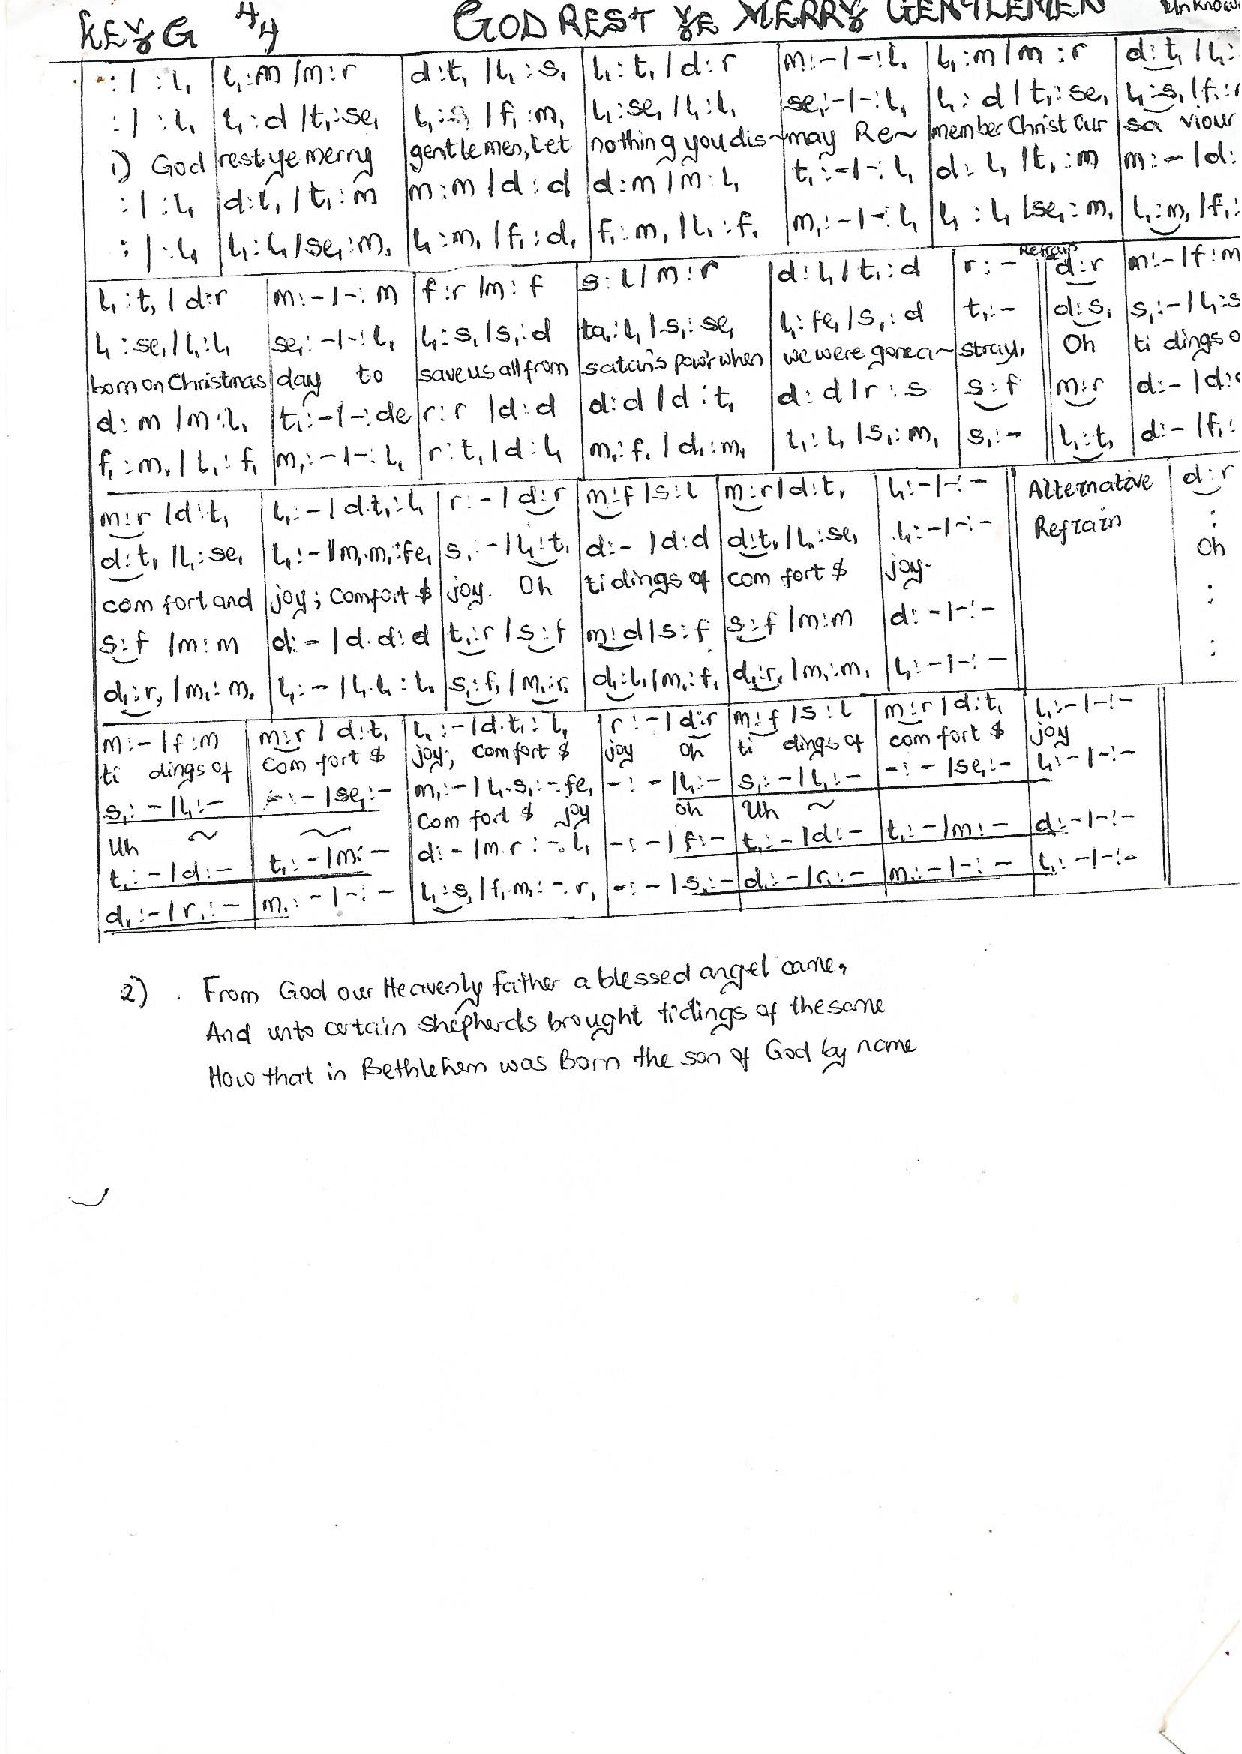 KEY G 4/4 GOD REST YE MERRY GENTLEMEN Unknow
: | : l, | l,:m |m:r | d:t, |l,:s, | l,:t, |d:r | m:-|-:l, | l,:m |m:r | d:t, |l,:
: | : l, | l,:d |t,:se, | l,:s, |f,:m, | l,:se, |l,:l, | se,:-|-:l, | l,:d |t,:se, | l,:s, |f,:
1) God | rest ye merry | gentlemen, Let | nothing you dis~ | may Re~ | member Christ Our | sa viour
: | : l, | d:l, |t,:m | m:m |d:d | d:m |m:l, | t,:-|-:l, | d:l, |t,:m | m:- |d:
: | : l, | l,:l, |se,:m, | l,:m, |f,:d, | f,:m, |l,:f, | m,:-|-:l, | l,:l, |se,:m, | l,:m, |f,:
Refrain
l,:t, |d:r | m:-|-:m | f:r |m:f | s:l |m:r | d:l, |t,:d | r:- | d:r | m:-|f:m
l,:se, |l,:l, | se,:-|-:l, | l,:s, |s,:d | ta,:l, |s,:se, | l,:fe, |s,:d | t,:- | d:s, | s,:-|l,:s
born on Christmas | day to | save us all from | satan's pow'r when | we were gone a~ | stray, | Oh | ti dings o
d:m |m:l, | t,:-|-:de | r:r |d:d | d:d |d:t, | d:d |r:s | s:f | m:r | d:- |d:
f,:m, |l,:f, | m,:-|-:l, | r:t, |d:l, | m,:f, |d,:m, | l,:l, |s,:m, | s,:- | l,:t, | d:- |f,:
m:r |d:t, | l,:- |d.t,:l, | r:- |d:r | m:f |s:l | m:r |d:t, | l,:-|-:- | Alternative | d:r
d:t, |l,:se, | l,:-|m,.m,:fe, | s,:- |l,:t, | d:- |d:d | d:t, |l,:se, | l,:-|-:- | Refrain | :
com fort and | joy; comfort $ | joy. Oh | tidings of | com fort $ | joy. | Oh
s:f |m:m | d:- |d.d:d | t,:r |s:f | m:d |s:f | s:f |m:m | d:-|-:- | :
d,:r, |m,:m, | l,:- |l,.l,:l, | s,:f, |m,:r, | d,:l, |m,:f, | d,:r, |m,:m, | l,:-|-:- | :
m:- |f:m | m:r |d:t, | l,:-|d.t,:l, | r:-|d:r | m:f |s:l | m:r |d:t, | l,:-|-:-
ti dings of | com fort $ | joy; comfort $ | joy oh | ti dings of | com fort $ | joy
s,:- |l,:- | -:- |se,:- | m,:-|l,.s,:-.fe, | -:- |l,:- | s,:-|l,:- | -:- |se,:- | l,:-|-:-
Uh ~ | ~ | Com fort $ joy | oh | Uh ~
t,:- |d:- | t,:- |m:- | d:-|m.r:-.l, | -:- |f:- | t,:- |d:- | t,:- |m:- | d:-|-:-
d,:- |r,:- | m,:-|-:- | l,:s, |f,.m,:-.r, | -:- |s,:- | d,:-|r,:- | m,:-|-:- | l,:-|-:-
2) . From God our Heavenly father a blessed angel came,
And unto certain shepherds brought tidings of the same
How that in Bethlehem was Born the son of God by name